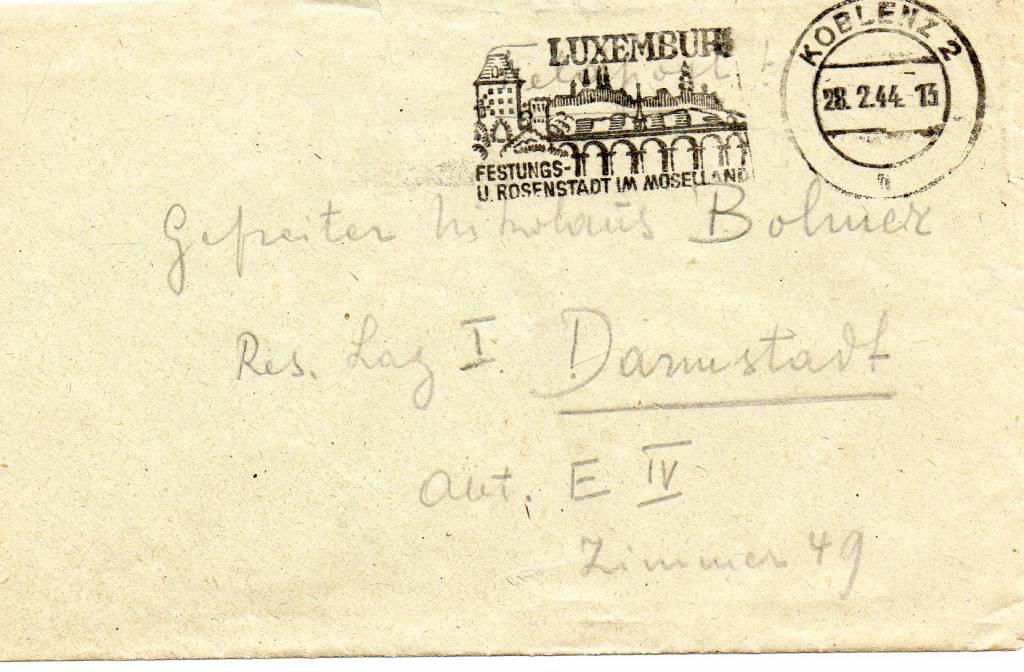 LUXEMBURG
Feldpost
KOBLENZ 2
28. 2.44. 13
FESTUNGS-
U. ROSENSTADT IM MOSELLAND
Gefreiter Nikolaus Bohmer
Res. Laz I. Darmstadt
Abt. E IV
Zimmer 49